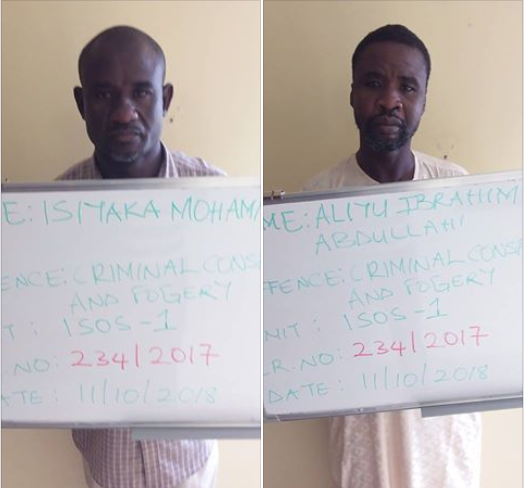 E: ISIYAKA MOHAM
ENCE: CRIMINAL CONS
AND FOGERY
T : ISOS-1
.NO: 234/2017
ATE : 11/10/2018
ME: ALIYU IBRAHIM
ABDULLAHI
FENCE: CRIMINAL CONS
AND FOGERY
NIT : ISOS-1
R.NO: 234/2017
DATE : 11/10/2018